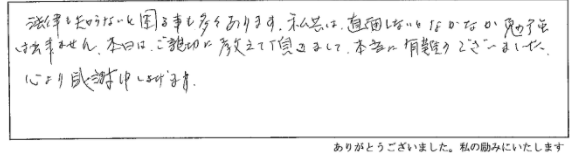 法律を知らないと困る事も多くあります。私共は、直面しないとなかなか勉強
出来ません。本日は、ご親切に教えて頂きまして、本当に有難うございました。
心より感謝申し上げます。
ありがとうございました。私の励みにいたします